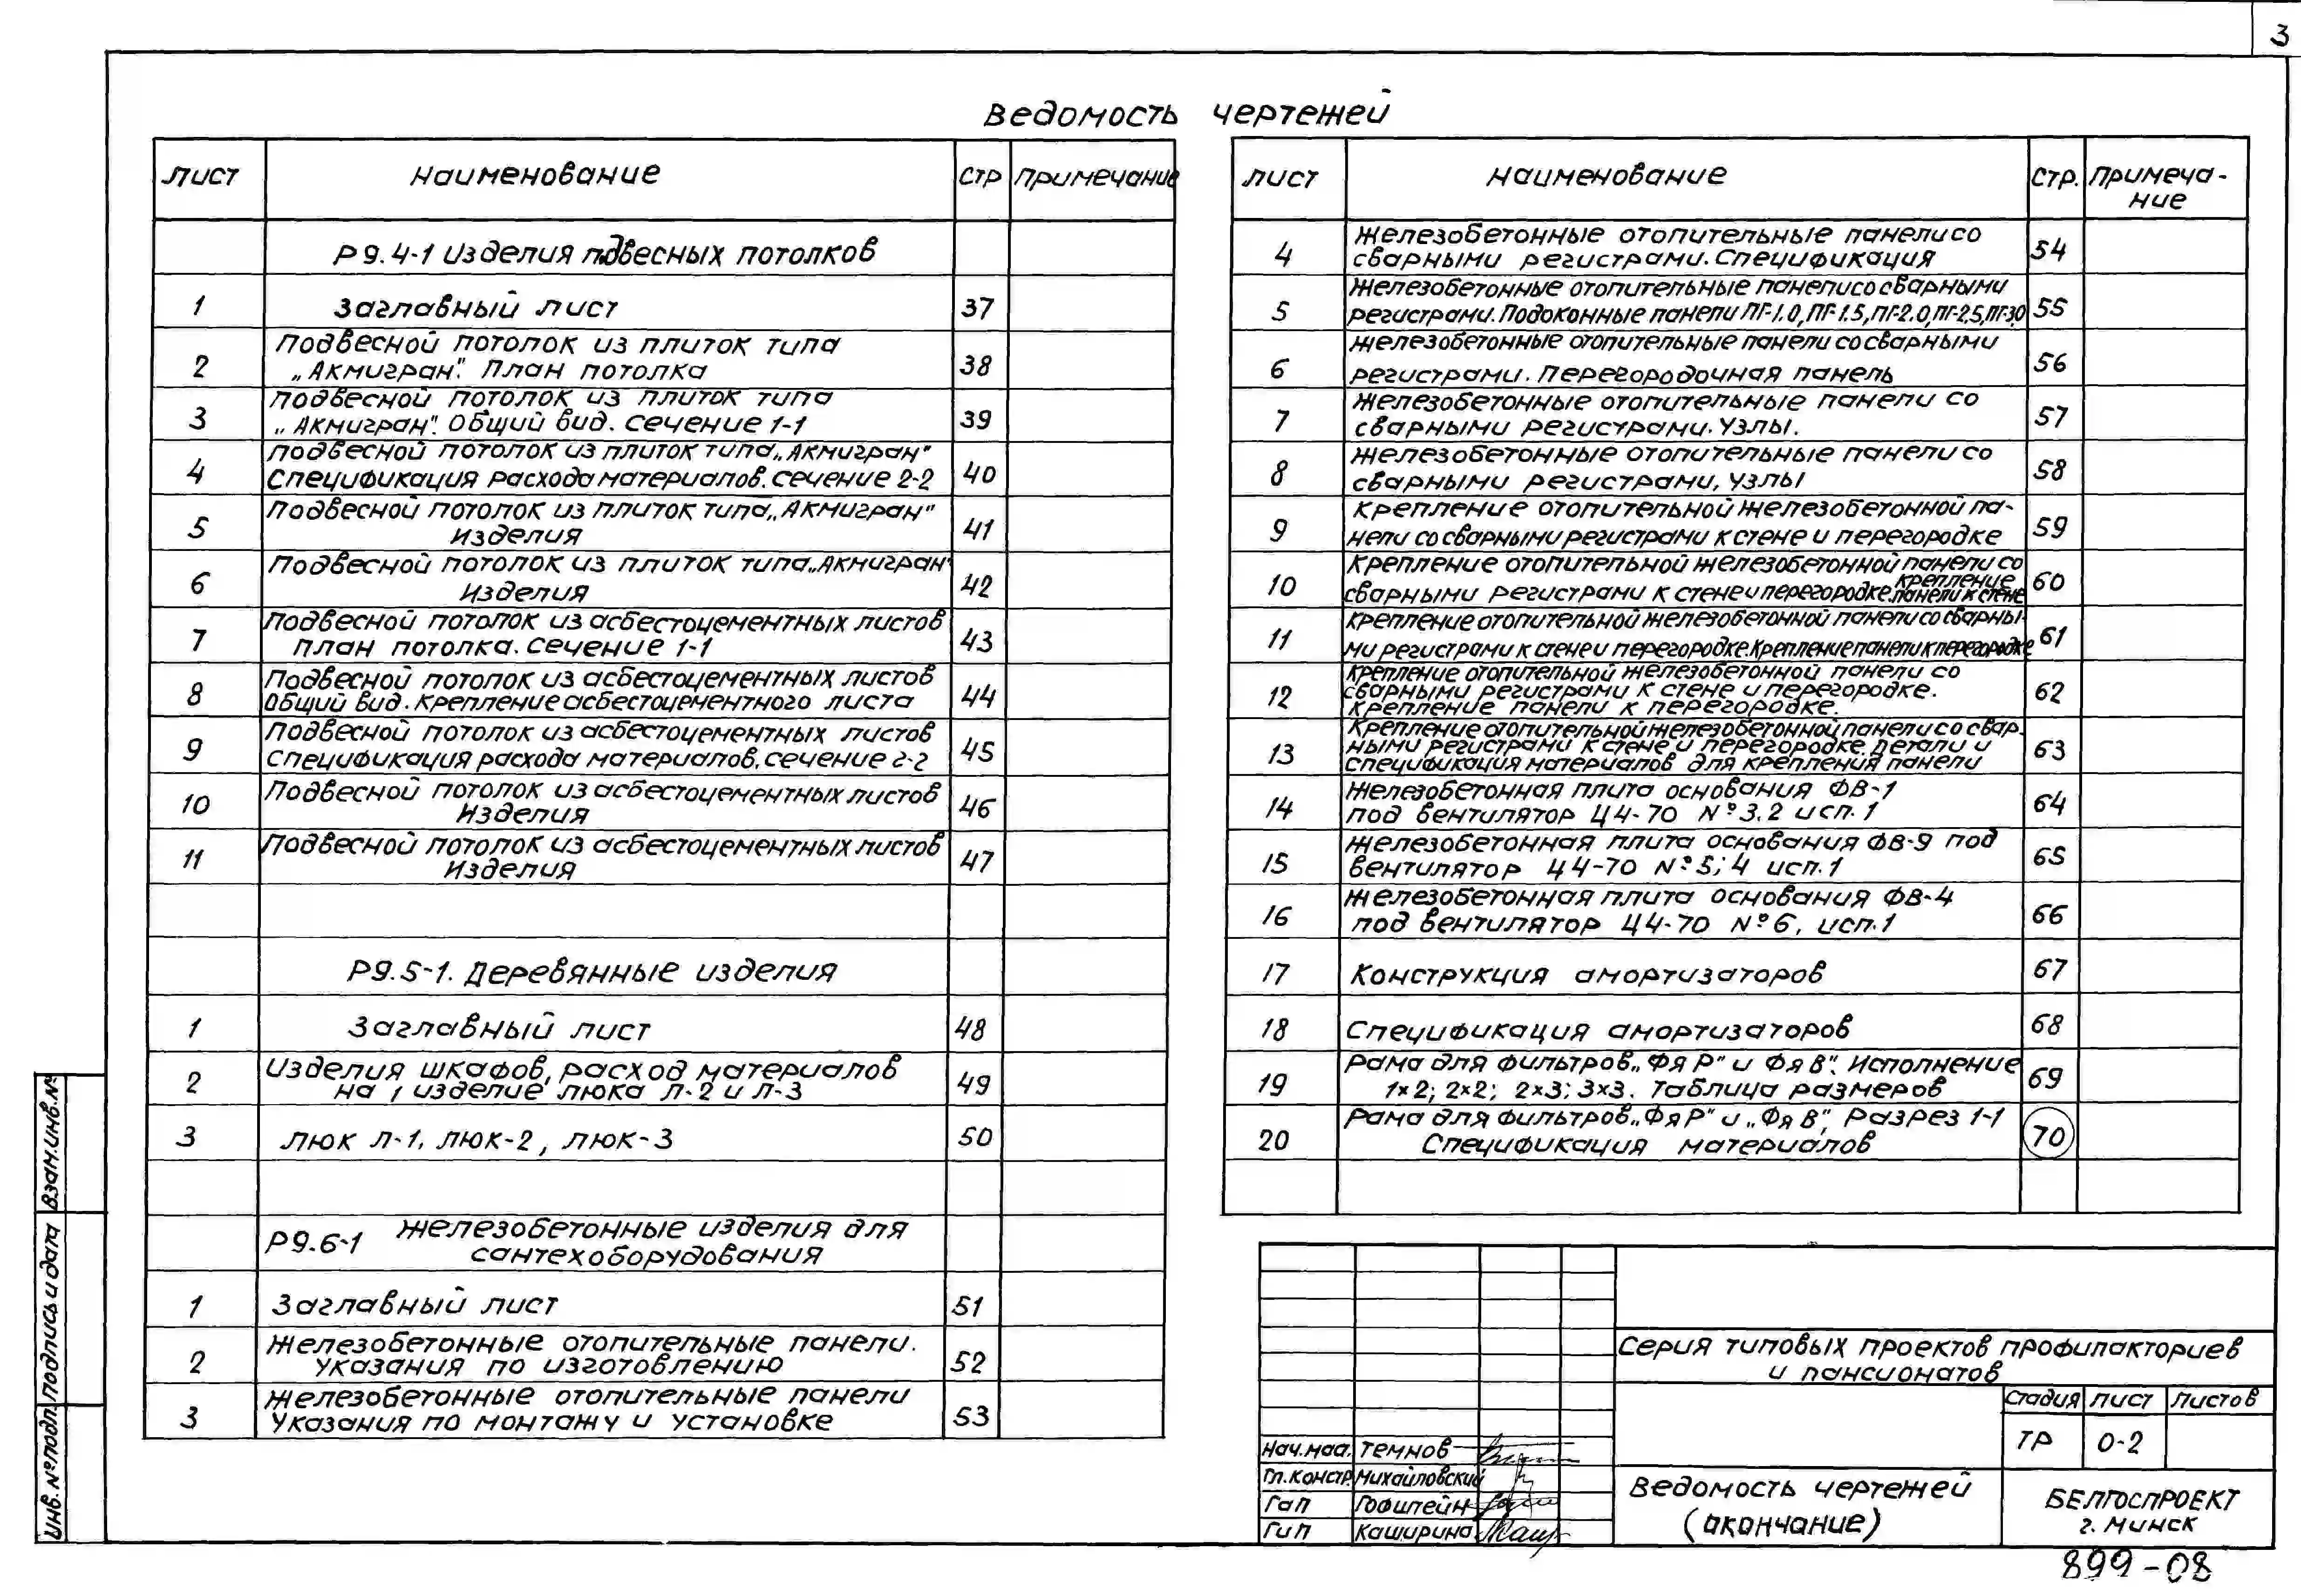 3
Ведомость чертежей
Лист Наименование Стр Примечание
Р9.4-1 Изделия подвесных потолков
1 Заглавный лист 37
2 Подвесной потолок из плиток типа 38
„Акмигран". План потолка
3 Подвесной потолок из плиток типа 39
„Акмигран". Общий вид. Сечение 1-1
4 Подвесной потолок из плиток типа „Акмигран" 40
Спецификация расхода материалов. Сечение 2-2
5 Подвесной потолок из плиток типа „Акмигран" 41
Изделия
6 Подвесной потолок из плиток типа „Акмигран" 42
Изделия
7 Подвесной потолок из асбестоцементных листов 43
план потолка. Сечение 1-1
8 Подвесной потолок из асбестоцементных листов 44
Общий вид. Крепление асбестоцементного листа
9 Подвесной потолок из асбестоцементных листов 45
Спецификация расхода материалов. Сечение 2-2
10 Подвесной потолок из асбестоцементных листов 46
Изделия
11 Подвесной потолок из асбестоцементных листов 47
Изделия
Р9.5-1. Деревянные изделия
1 Заглавный лист 48
2 Изделия шкафов, расход материалов 49
на 1 изделие, люка Л-2 и Л-3
3 люк Л-1, люк-2, люк-3 50
Р9.6-1 Железобетонные изделия для
сантехоборудования
1 Заглавный лист 51
2 Железобетонные отопительные панели. 52
Указания по изготовлению
3 Железобетонные отопительные панели 53
Указания по монтажу и установке
Лист Наименование Стр. Примеча-
ние
4 Железобетонные отопительные панели со 54
сварными регистрами. Спецификация
5 Железобетонные отопительные панели со сварными 55
регистрами. Подоконные панели ПГ-1.0, ПГ-1.5, ПГ-2.0, ПГ-2.5, ПГ-3.0
6 Железобетонные отопительные панели со сварными 56
регистрами. Перегородочная панель
7 Железобетонные отопительные панели со 57
сварными регистрами. Узлы.
8 Железобетонные отопительные панели со 58
сварными регистрами, узлы
9 Крепление отопительной железобетонной па- 59
нели со сварными регистрами к стене и перегородке
10 Крепление отопительной железобетонной панели со 60
сварными регистрами к стене и перегородке. Крепление
панели к стене
11 Крепление отопительной железобетонной панели со сварны- 61
ми регистрами к стене и перегородке. Крепление панели к перегородке
12 Крепление отопительной железобетонной панели со 62
сварными регистрами к стене и перегородке.
Крепление панели к перегородке.
13 Крепление отопительной железобетонной панели со свар- 63
ными регистрами к стене и перегородке. Детали и
спецификация материалов для крепления панели
14 Железобетонная плита основания ФВ-1 64
под вентилятор Ц4-70 №3.2 исп.1
15 Железобетонная плита основания ФВ-9 под 65
вентилятор Ц4-70 №5; 4 исп.1
16 Железобетонная плита основания ФВ-4 66
под вентилятор Ц4-70 №6, исп.1
17 Конструкция амортизаторов 67
18 Спецификация амортизаторов 68
19 Рама для фильтров „ФяР" и ФяВ". Исполнение 69
1×2; 2×2; 2×3; 3×3. Таблица размеров
20 Рама для фильтров „ФяР" и „ФяВ", Разрез 1-1 70
Спецификация материалов
Серия типовых проектов профилакториев
и пансионатов
Стадия Лист Листов
ТР 0-2
Нач.маа. Темнов
Гл.констр. Михайловский
Гап Гофштейн
Гип Каширина
Ведомость чертежей
(окончание)
БЕЛГОСПРОЕКТ
г. Минск
899-08
Инв. № подл. Подпись и дата Взам. инв. №